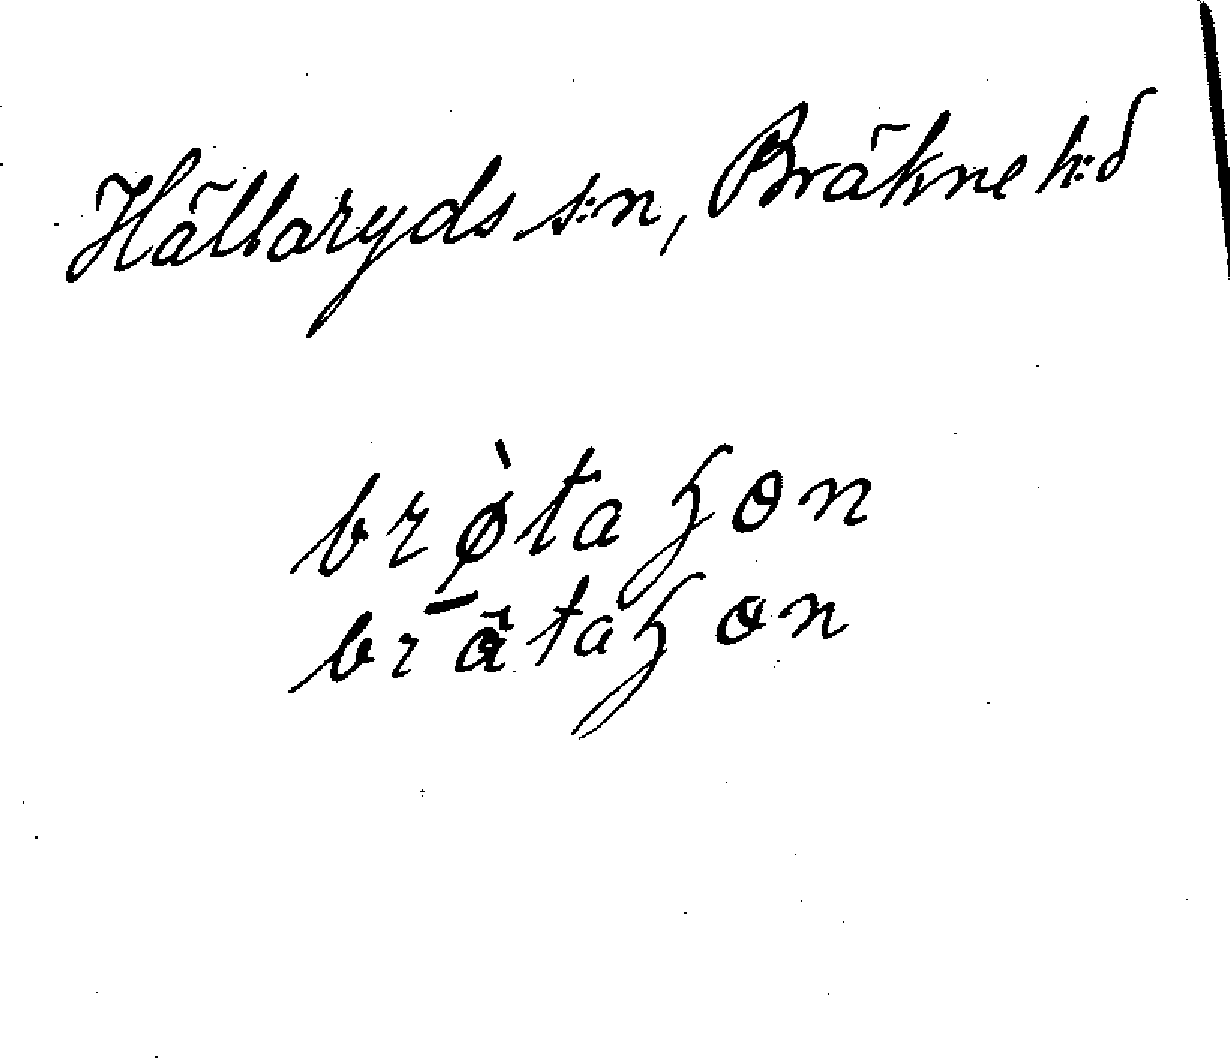 Hällaryds s:n, Bräkne h:d
brø̀taʒon
brätaʒon